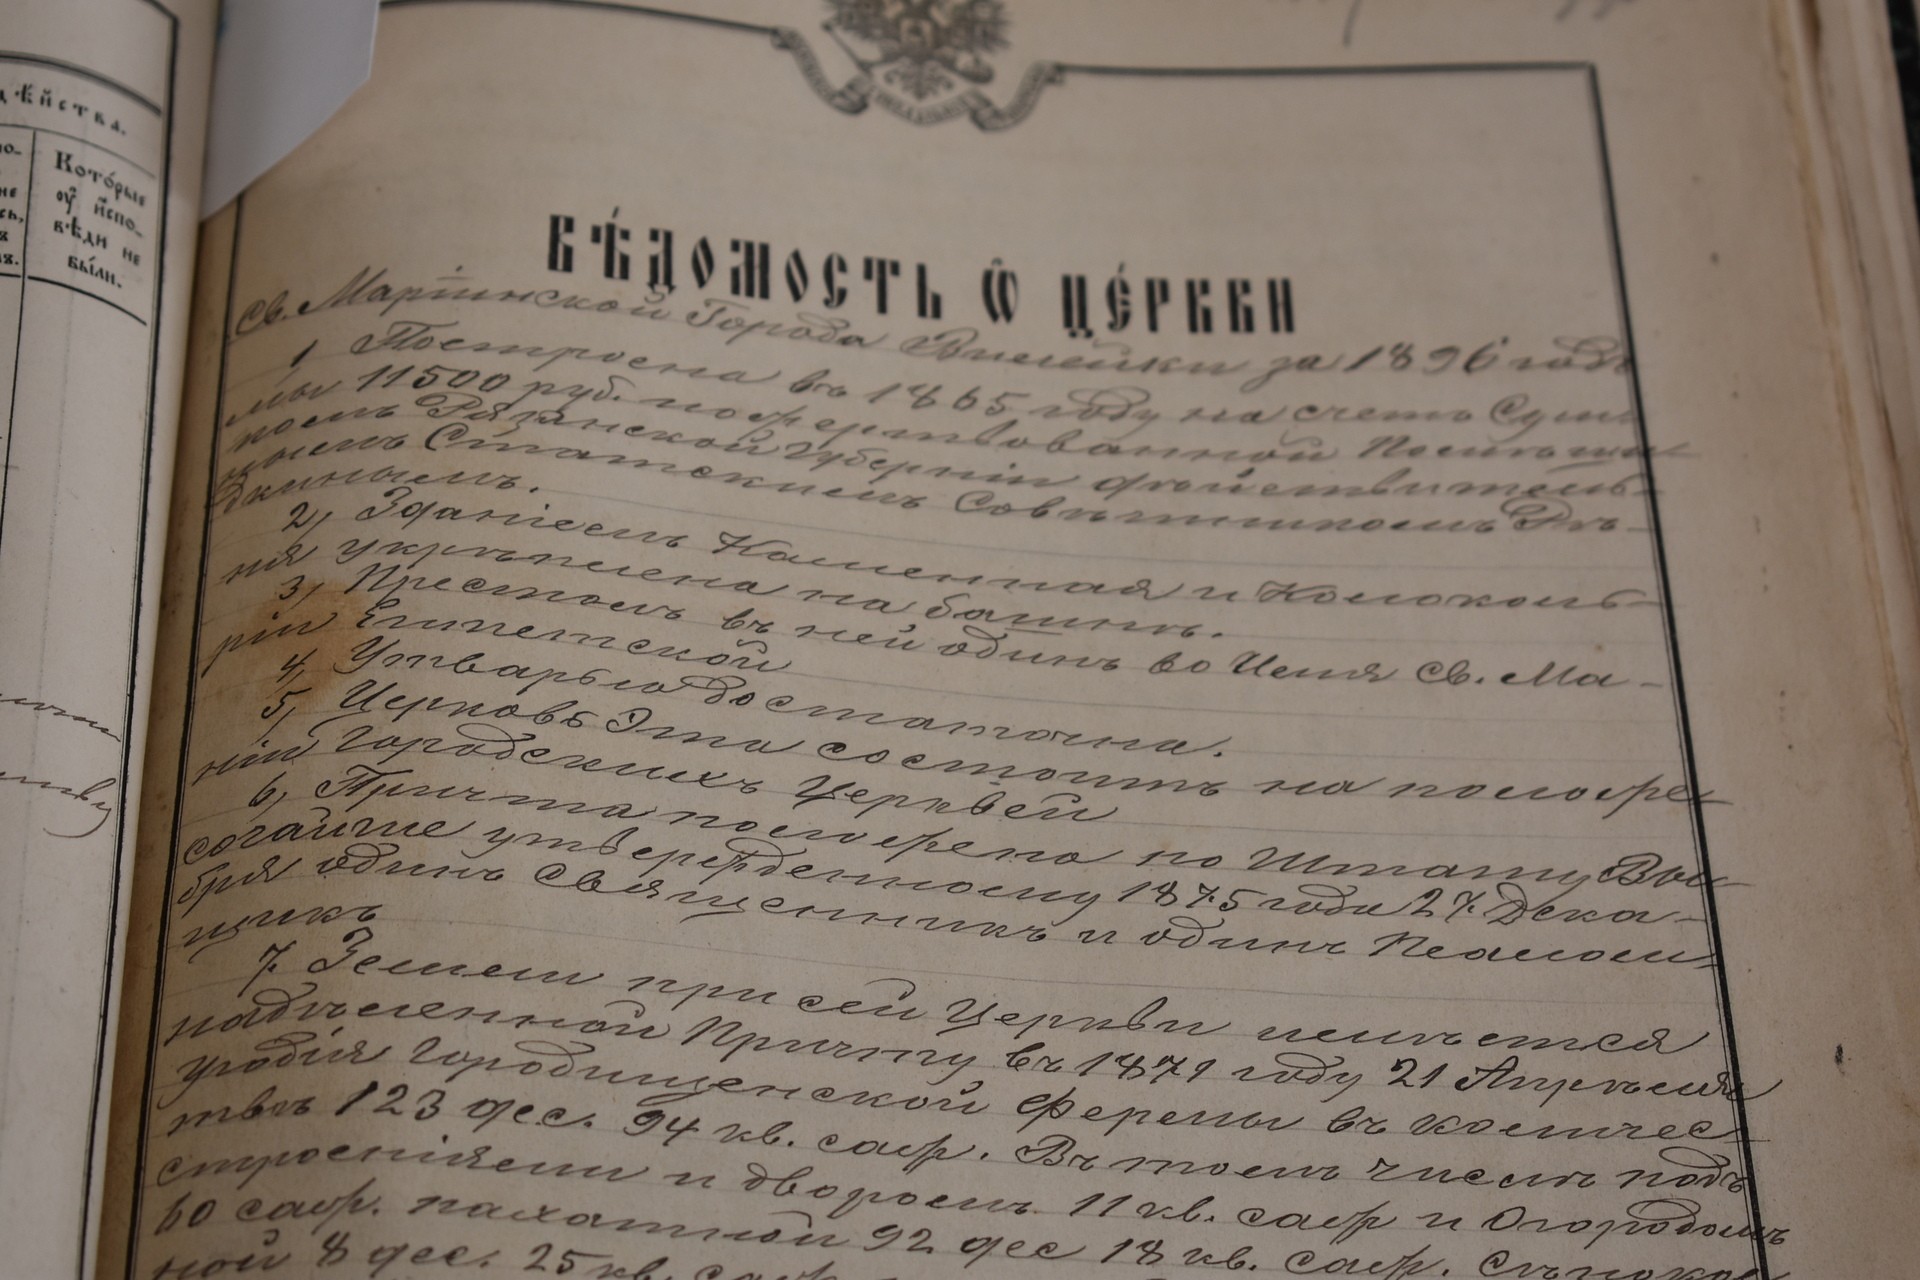 дѣйства.
Кото́рые
оу҆ и҆спо-
вѣди не
бы́ли.
ВѢ́ДОМОСТЬ Ѽ ЦЕ́РКВИ
Св. Маріинской Города Вилейки за 1896 годъ
1 Построена въ 1865 году на счетъ Сум
мы 11500 руб. пожертвованной Помѣщи
комъ Рязанской Губерніи дѣйствитель-
нымъ Статскимъ Совѣтникомъ Рѣ-
дкинымъ.
2, Зданіемъ Каменная и Колоколь-
ня укрѣплена на башнѣ.
3, Престолъ въ ней одинъ во Имя Св. Ма-
ріи Египетской
4, Утварью достаточна.
5, Церковь Эта состоитъ на положе-
ніи Городскихъ Церквей
6, Причта положено по Штату Вы-
сочайше утвержденному 1875 года 27 Дека-
бря одинъ Священникъ и одинъ Псалом-
щикъ
7. Земли при сей Церкви имѣется
надѣленной Причту въ 1871 году 21 Апрѣля
угодія Городищенской Фермы въ количес-
твѣ 123 дес. 94 кв. саж. Въ томъ числѣ подъ
строеніями и дворомъ 11 кв. саж и Огородомъ
60 саж. пахатной 92 дес 18 кв. саж. Сѣнокос
ной 8 дес. 25 кв. саж.